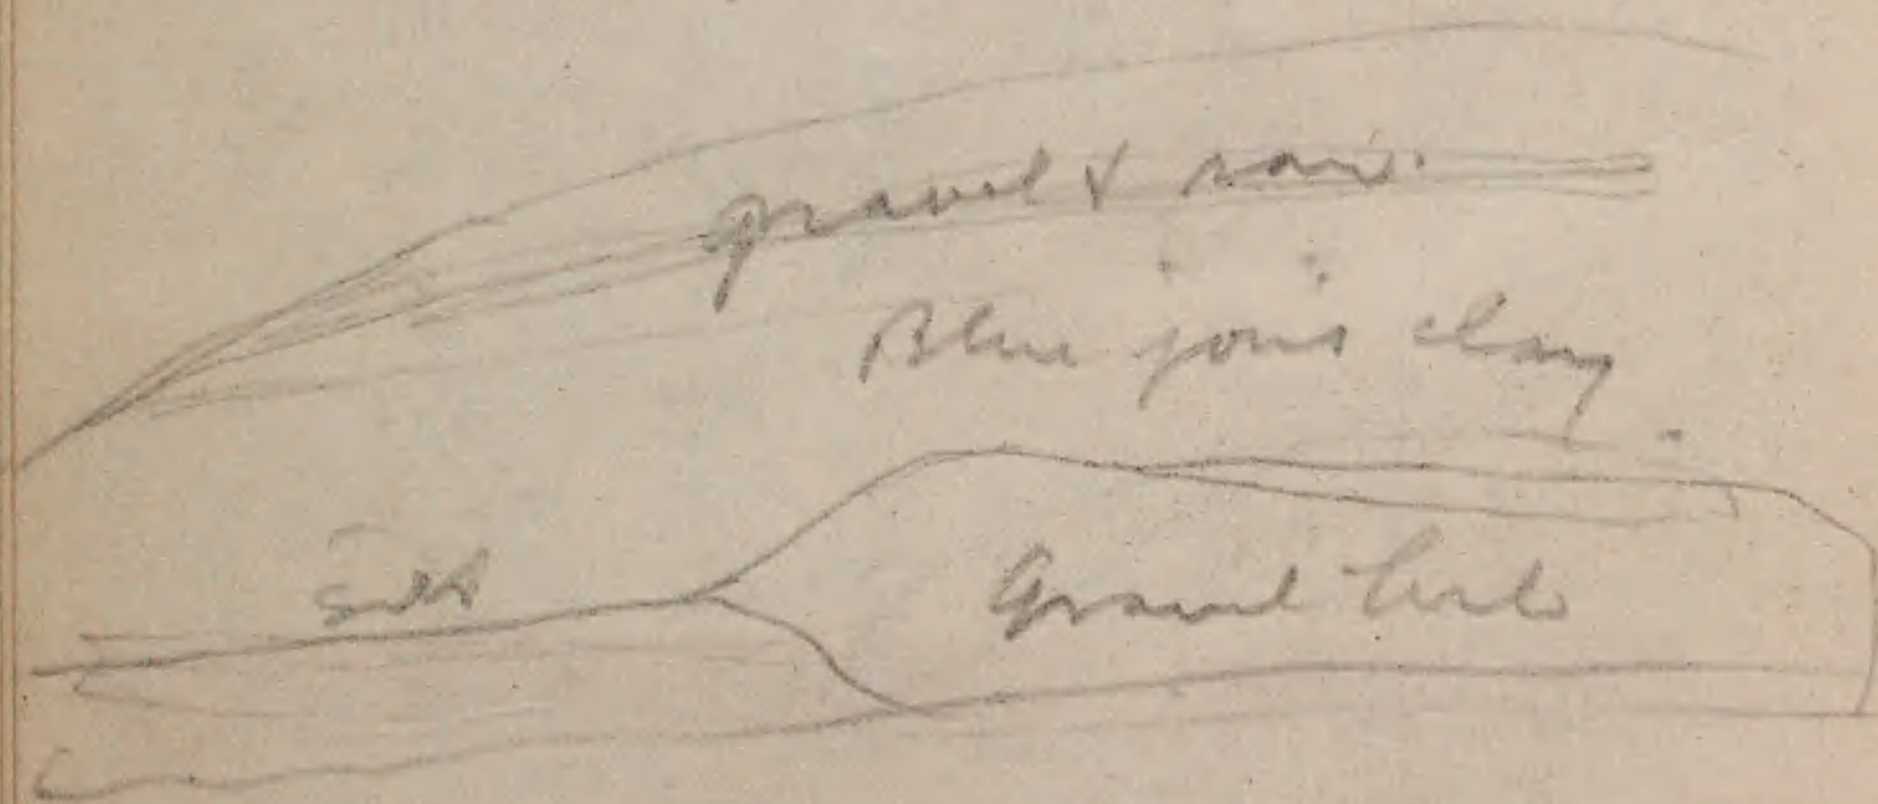 gravel & san.
Blue join clay.
Silt
Gravel beds